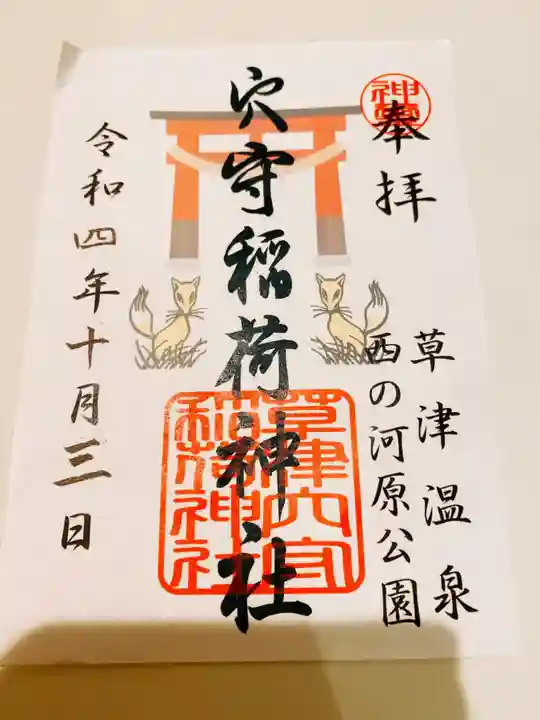 奉拝
神璽
草津温泉
西の河原公園
穴守稲荷神社
草津穴守
稲荷神社
令和四年十月三日